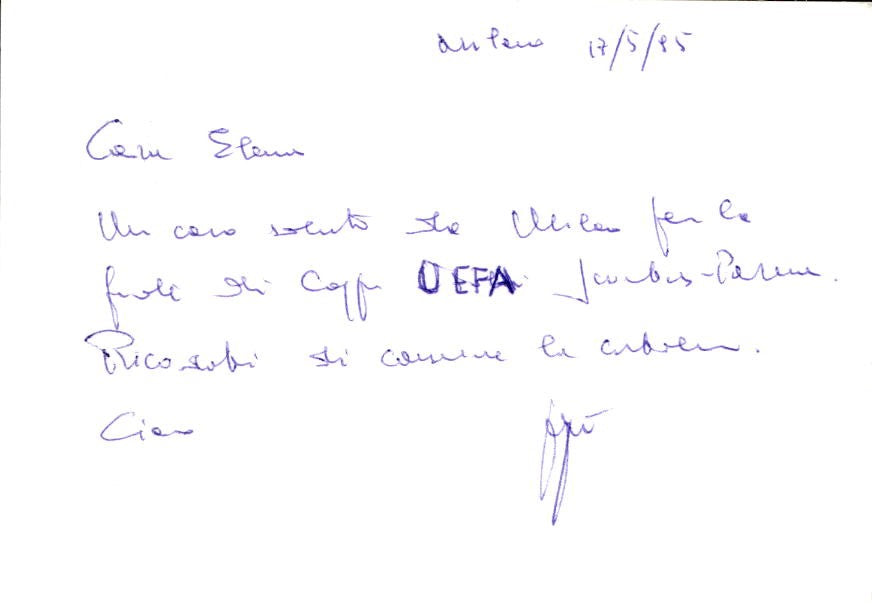 Milano 17/5/95
Cara Elena
Un caro saluto da Milano per la
finale di Coppa UEFA Juventus-Parma.
Ricordati di
Ciao